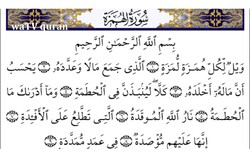 waTV quran
سُورَةُ الهُمَزَةِ
بِسْمِ اللَّهِ الرَّحْمَٰنِ الرَّحِيمِ
وَيْلٌ لِّكُلِّ هُمَزَةٍ لُّمَزَةٍ ۝ الَّذِي جَمَعَ مَالًا وَعَدَّدَهُ ۝ يَحْسَبُ
أَنَّ مَالَهُ أَخْلَدَهُ ۝ كَلَّا لَيُنبَذَنَّ فِي الْحُطَمَةِ ۝ وَمَا أَدْرَاكَ مَا
الْحُطَمَةُ ۝ نَارُ اللَّهِ الْمُوقَدَةُ ۝ الَّتِي تَطَّلِعُ عَلَى الْأَفْئِدَةِ ۝
إِنَّهَا عَلَيْهِم مُّؤْصَدَةٌ ۝ فِي عَمَدٍ مُّمَدَّدَةٍ ۝